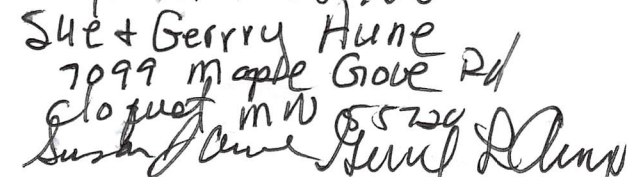 Sue + Gerrry Aune
7099 Maple Grove Rd
Cloquet MN 55720
Susan J Aune Gerry L Aune